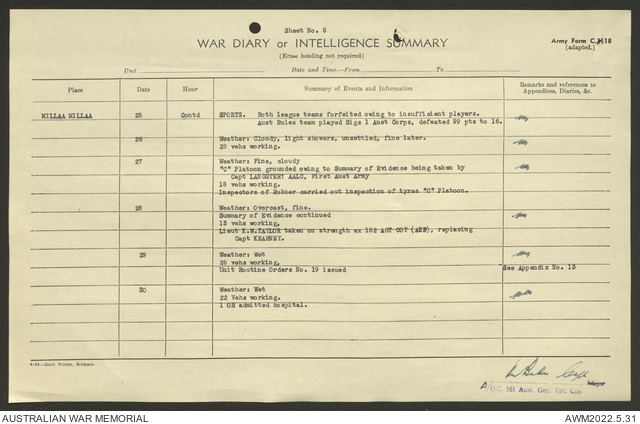 Sheet No. 5
WAR DIARY or INTELLIGENCE SUMMARY
(Erase heading not required)
Army Form C.2118
(adapted.)
Unit Date and Time—From To
Place Date Hour Summary of Events and Information Remarks and references to
Appendices, Diaries, &c.
MILLAA MILLAA 25 Contd SPORTS. Both league teams forfeited owing to insufficient players.
Aust Rules team played Sigs 1 Aust Corps, defeated 99 pts to 16.
26 Weather: Cloudy, light showers, unsettled, fine later.
28 vehs working.
27 Weather: Fine, cloudy
"C" Platoon grounded owing to Summary of Evidence being taken by
Capt LANGSTERT AALC, First Aust Army
18 vehs working.
Inspectors of Rubber carried out inspection of tyres "C" Platoon.
28 Weather: Overcast, fine.
Summary of Evidence continued
13 vehs working.
Lieut K.W.TAYLOR taken on strength ex 152 AGT COY (ANB), replacing
Capt KEARNEY.
29 Weather: Wet
26 vehs working.
Unit Routine Orders No. 19 issued See Appendix No. 13
30 Weather: Wet
22 Vehs working.
1 OR admitted hospital.
4-43—Govt. Printer, Brisbane.
Capt
O.C. 161 Aust. Gen. Tpt. Coy.
AUSTRALIAN WAR MEMORIAL AWM2022.5.31